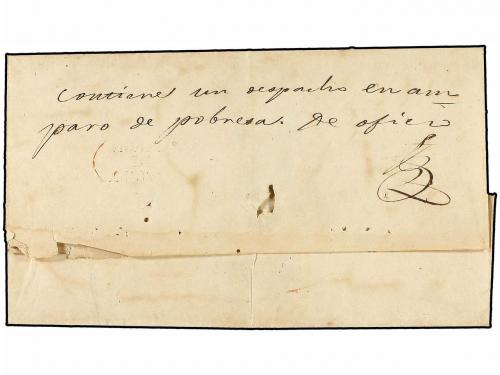 Contiene un despacho en am
paro de pobresa. De oficio